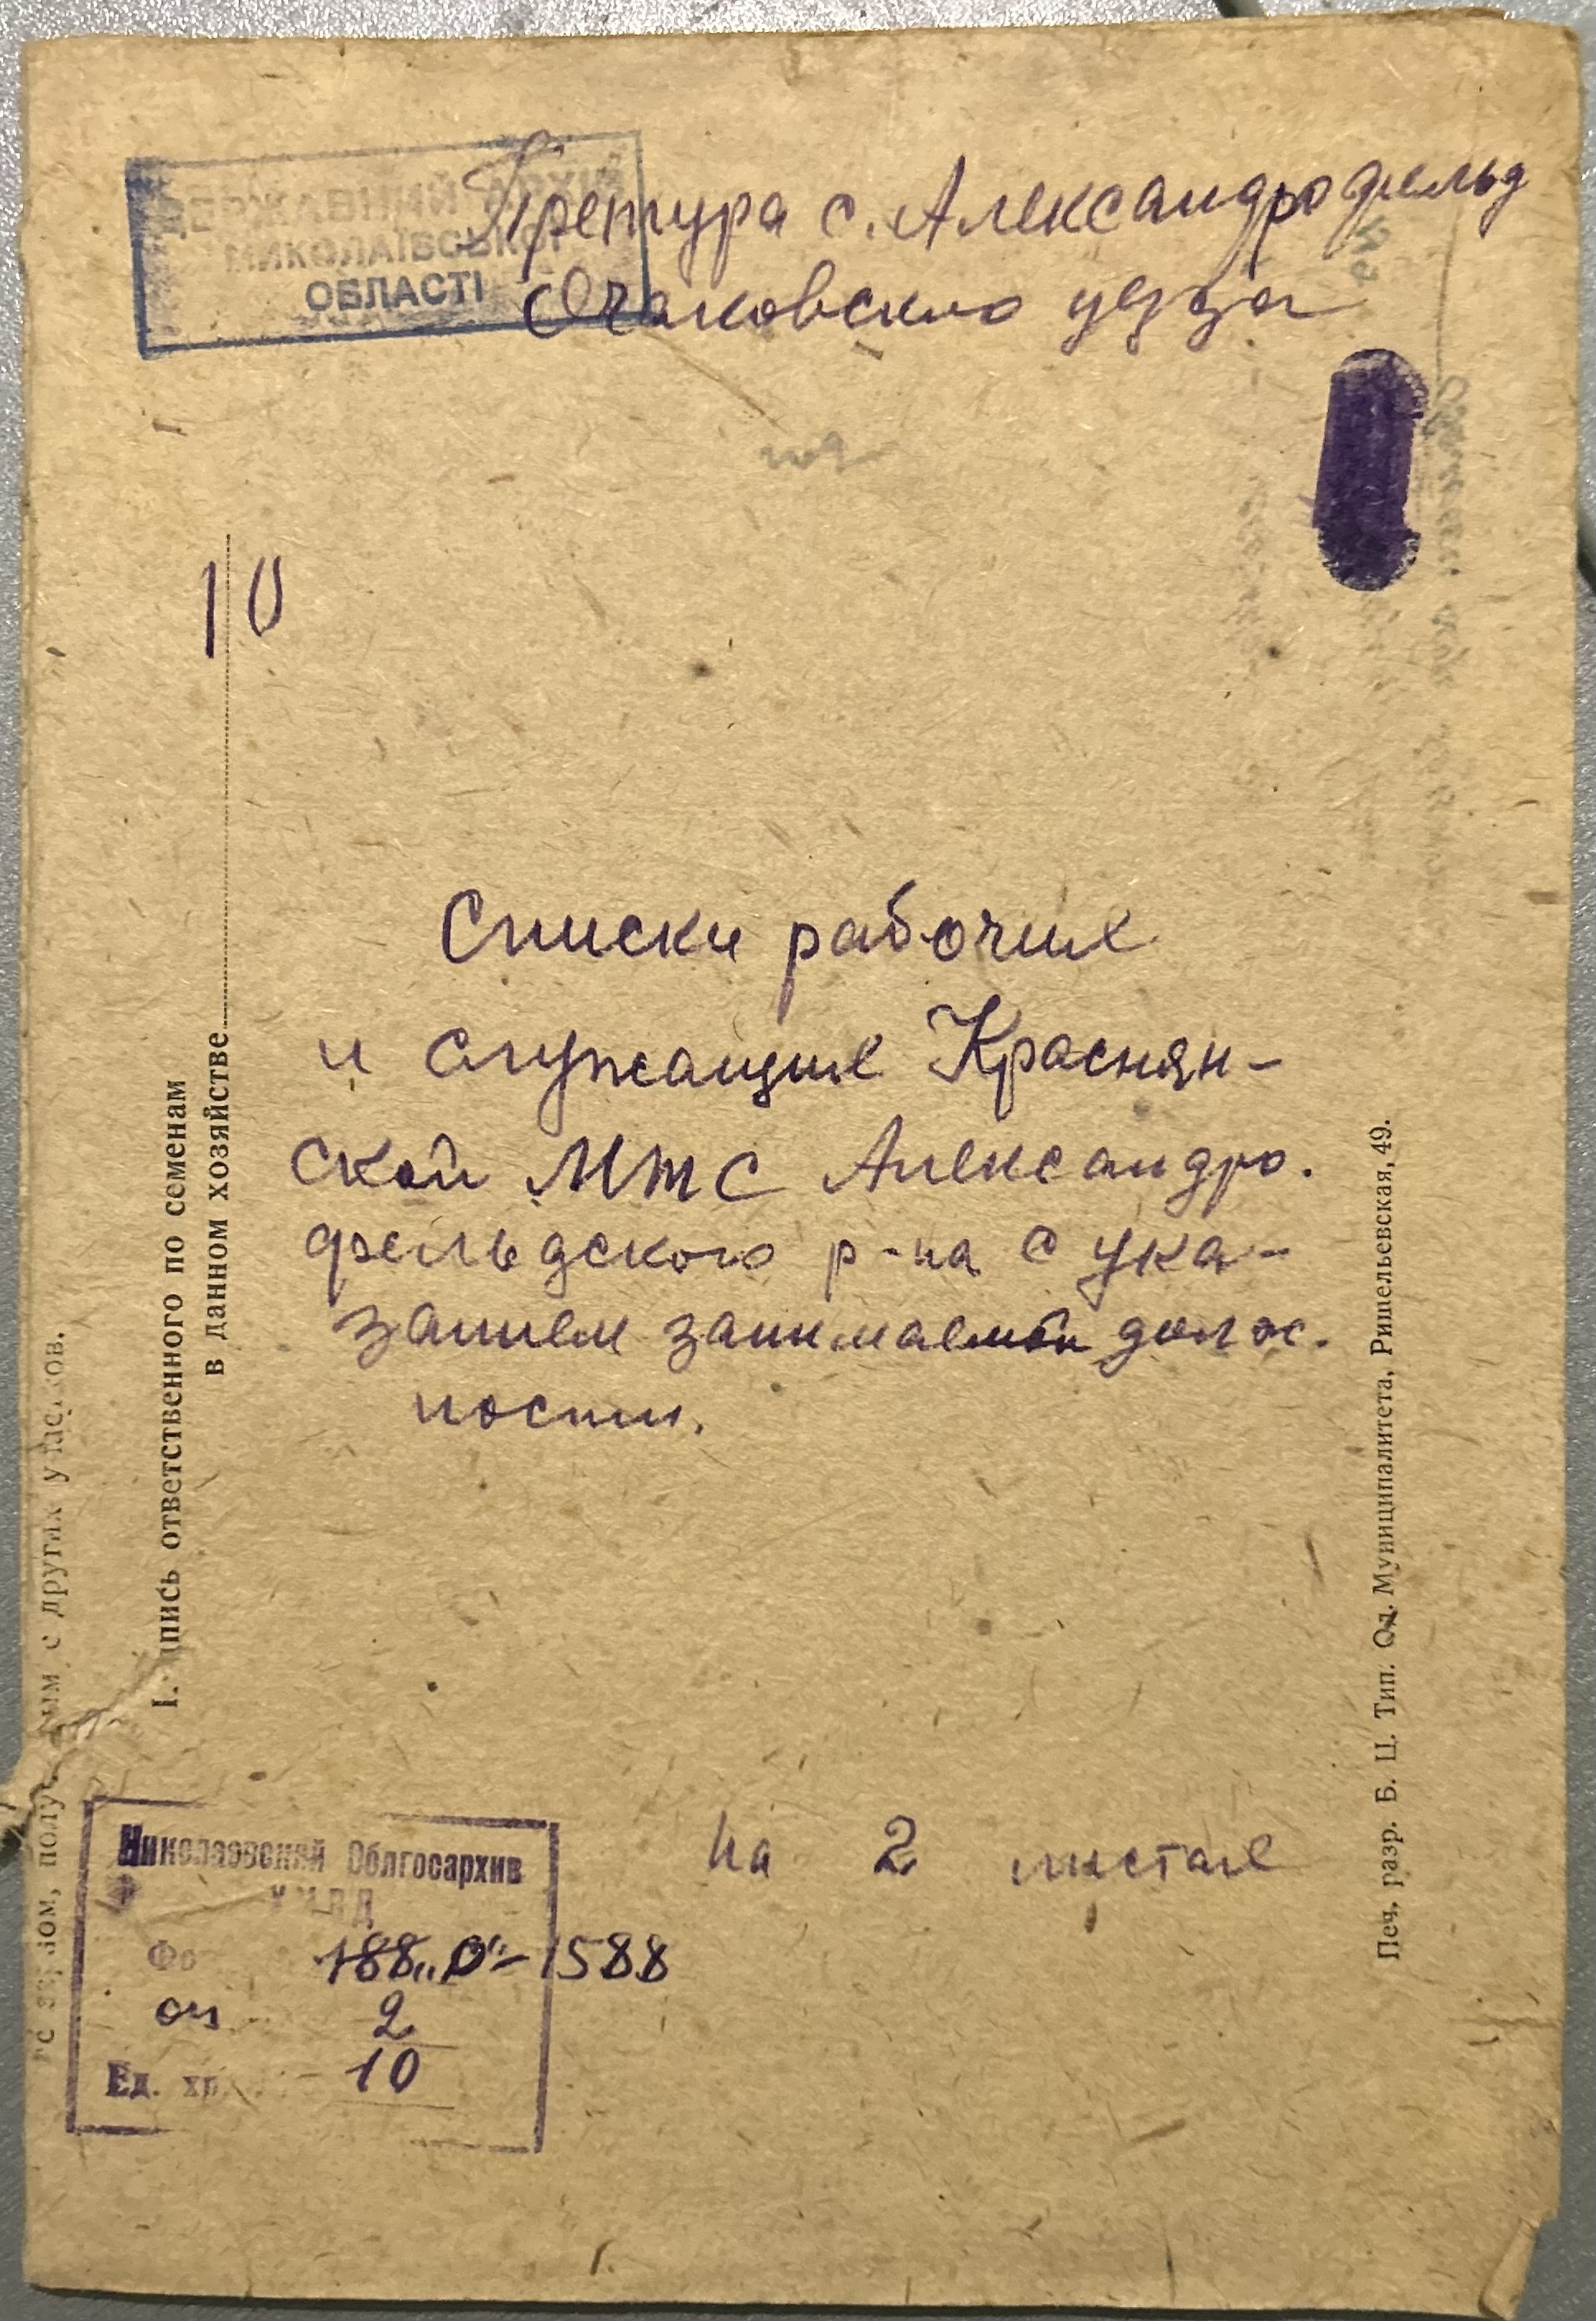 ДЕРЖАВНИЙ АРХІВ
МИКОЛАЇВСЬКОЇ
ОБЛАСТІ
Претура с. Александрофельд
Очаковского уезда
10
Списки рабочих
и служащих Краснян-
ской МТС Александро.
фельдского р-на с ука-
занием занимаемой долж.
ности.
на 2 листах
Николаевский Облгосархив
Фо 188 1588
оп 2
Ед. хр. 10
по семенам
ответственного
в данном хозяйстве
с других
Печ. разр. Б. Ц. Тип. Од. Муниципалитета, Ришельевская, 49.